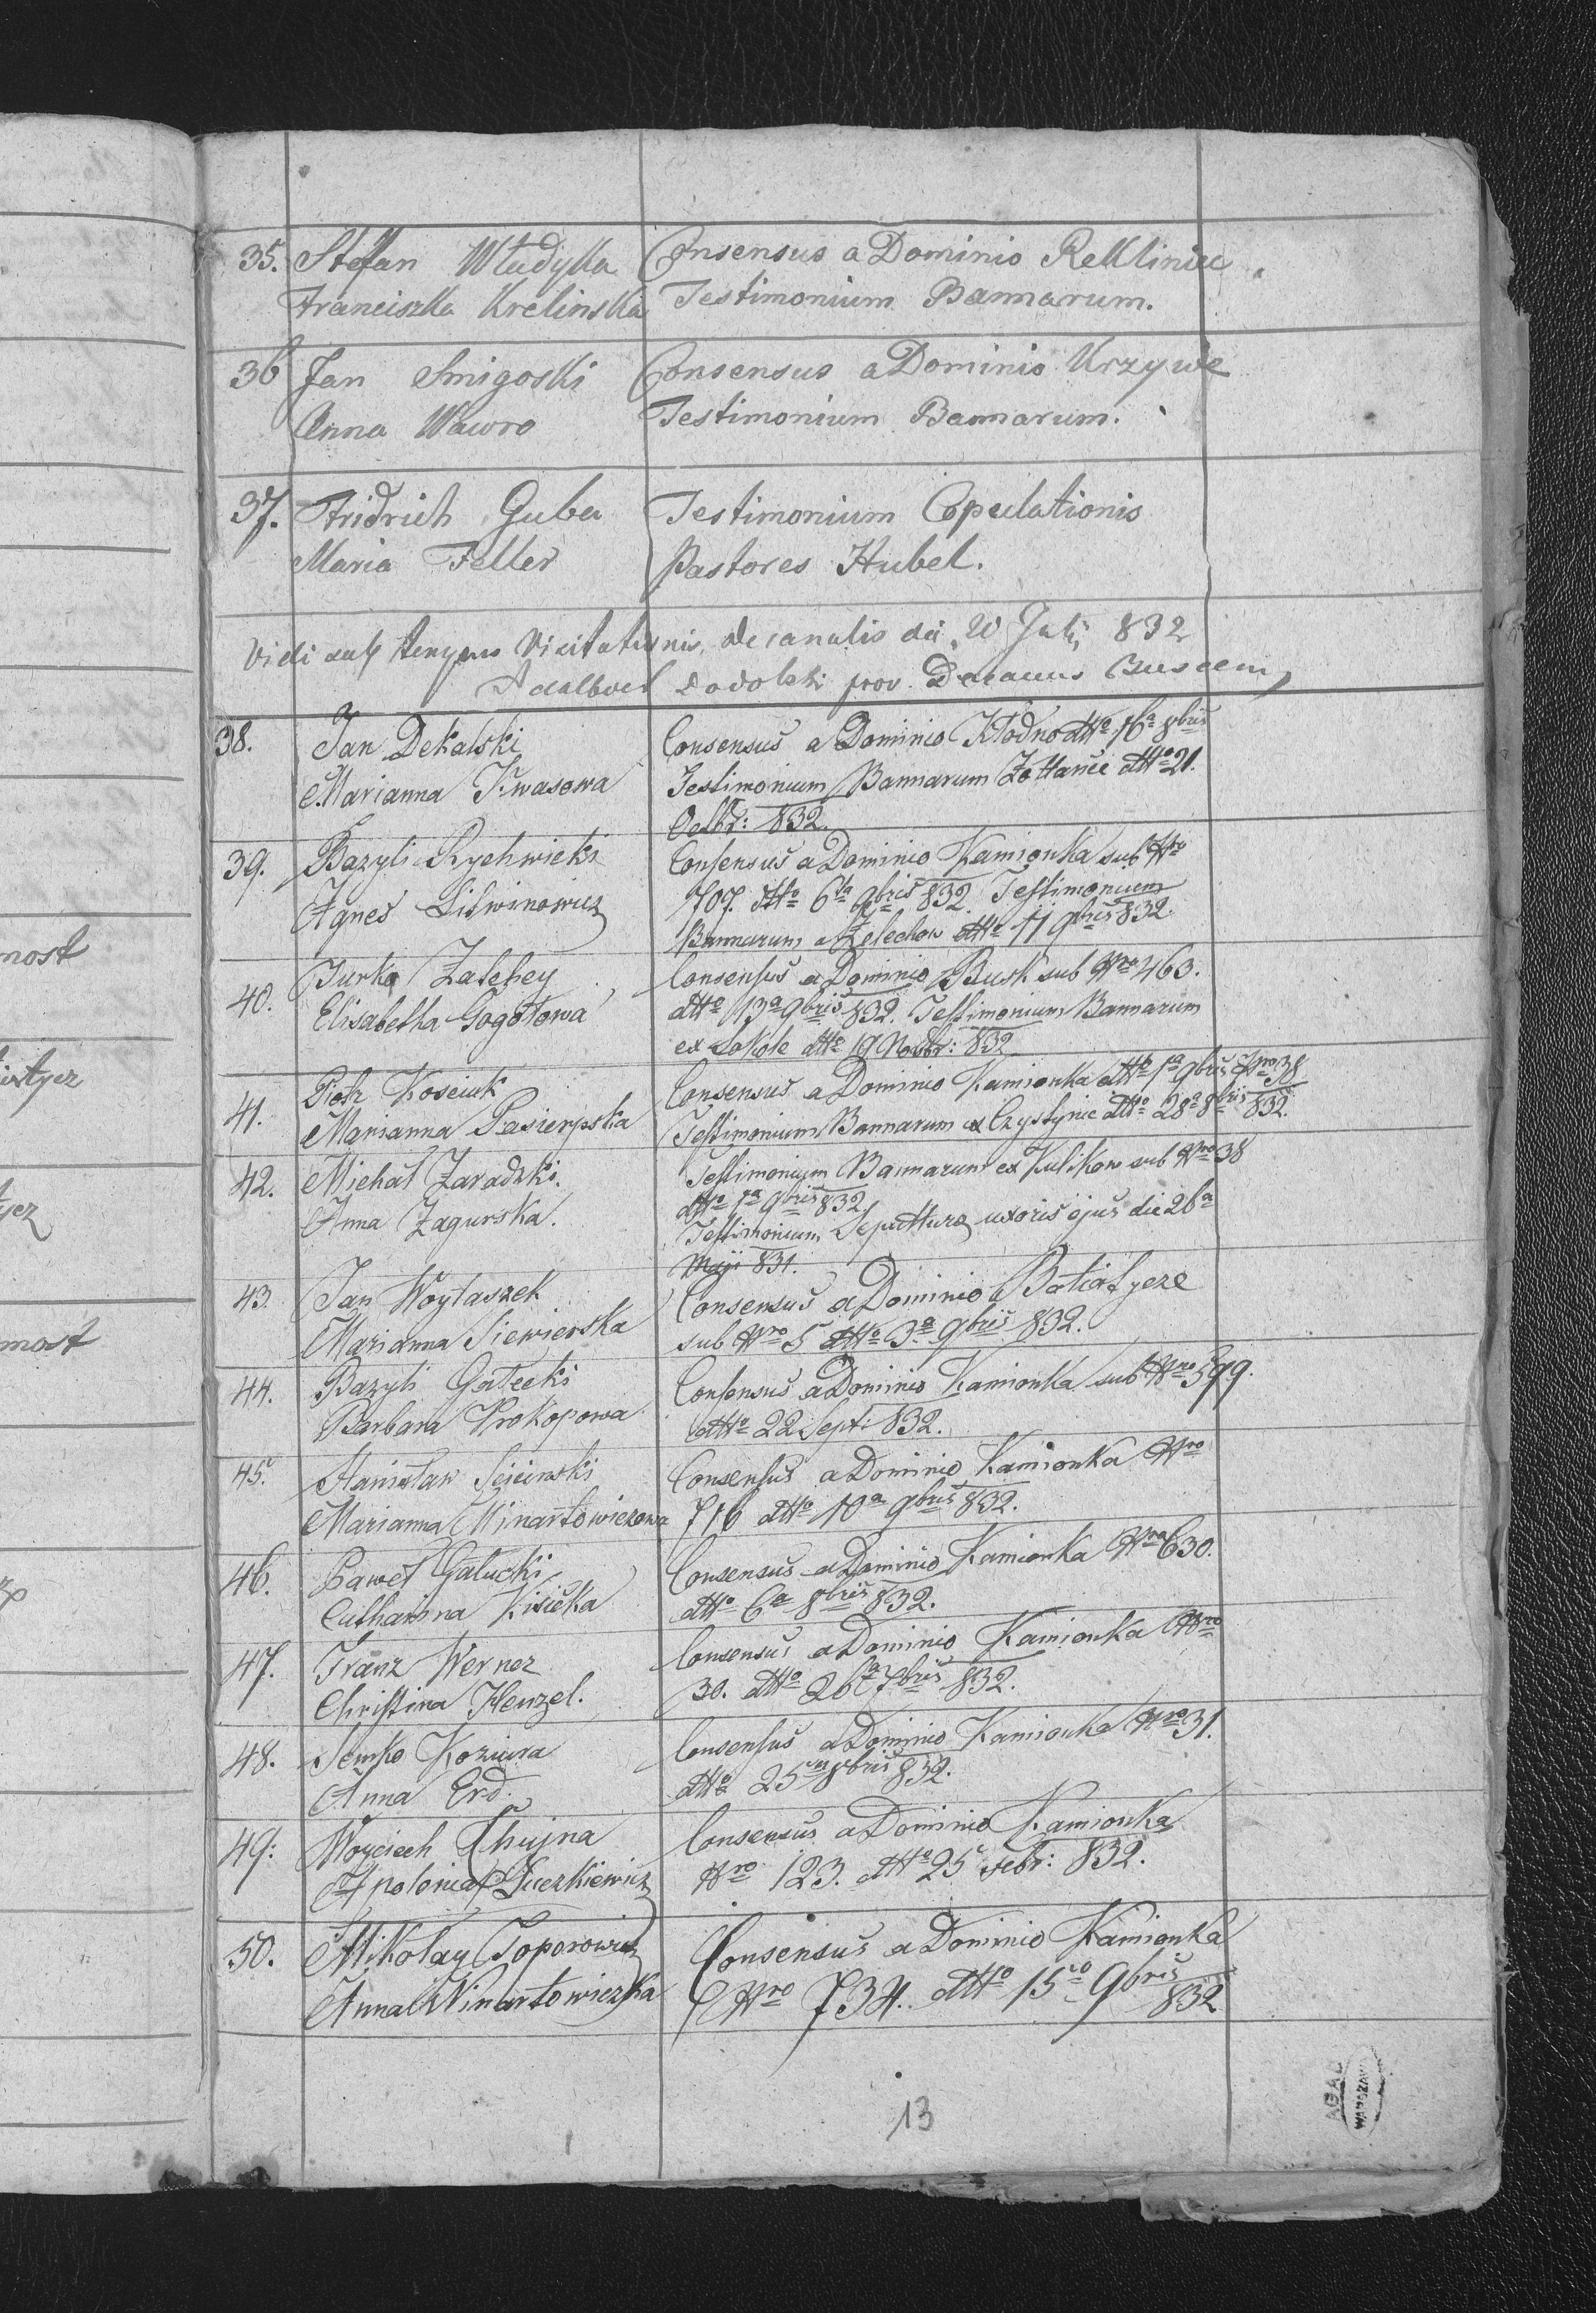 35. Stefan Władyka Consensus a Dominio Rekliniec.
Franciszka Krelinska Testimonium Bannarum.
36 Jan Smigoski Consensus a Dominio Krzywe
Anna Wawro Testimonium Bannarum.
37. Fridrich Guba Testimonium Copulationis
Maria Feller Pastores Hubel.
Vidi sub tempus Visitationis Decanalis die 20 Juli 832
Adalbert prov. Decanus
38. Jan Dekalski Consensus a Dominio Kłodno dtto 16a 8bris
Marianna Kwasowa Testimonium Bannarum Zołtańce dtto 21.
Octbr: 832.
39. Bazyli Rychwicki Consensus a Dominio Kamionka sub Nro
Agnes Litwinowicz 707. dtto 6ta 9bris 832. Testimonium
Bannarum a Zelechow dtto 11 9bris 832.
40. Jurko Zalehey Consensus a Dominio Busk sub Nro 463.
Elisabetha Gogołowa dtto 13a 9bris 832. Testimonium Bannarum
ex Sokole dtto 19 Novbr: 832
41. Piotr Kosciuk Consensus a Dominio Kamionka dtto 1a 9bris Nro 38
Marianna Pasierpska Testimonium Bannarum ex Czystynie dtto 28a 8bris 832.
42. Michał Zaradzki. Testimonium Bannarum ex Kulikow sub Nro 38
Anna Zagurska. dtto 1a 9bris 832.
Testimonium Sepulturae uxoris ejus die 26a
Maji 831.
43. Jan Woytaszek Consensus a Dominio Batiatycze
Marianna Siewierska sub Nro 5 dtto 3a 9bris 832.
44. Bazyli Gałecki Consensus a Dominio Kamionka sub Nro 599.
Barbara Prokopowa dtto 22 Sept: 832.
45. Stanisław Consensus a Dominio Kamionka Nro
Marianna Winartowiczowa 716 dtto 10a 9bris 832.
46. Paweł Gałucki Consensus a Dominio Kamionka Nro 630.
Catharina Kisicka dtto 6a 8bris 832.
47. Franz Werner Consensus a Dominio Kamionka Nro
Christina Henzel. 30. dtto 26a 7bris 832.
48. Semko Koziura Consensus a Dominio Kamionka Nro 31.
Anna Erd. dtto 25a 8bris 832.
49: Woyciech Chujna Consensus a Dominio Kamionka
Apolonia Guczkiewicz Nro 123. dtto 25 Febr: 832.
50. Mikołay Toporowicz Consensus a Dominio Kamionka
Anna Winartowiczka Nro 734. dtto 15to 9bris
832
13
AGAD
WARSZAWA
most
tyez
most